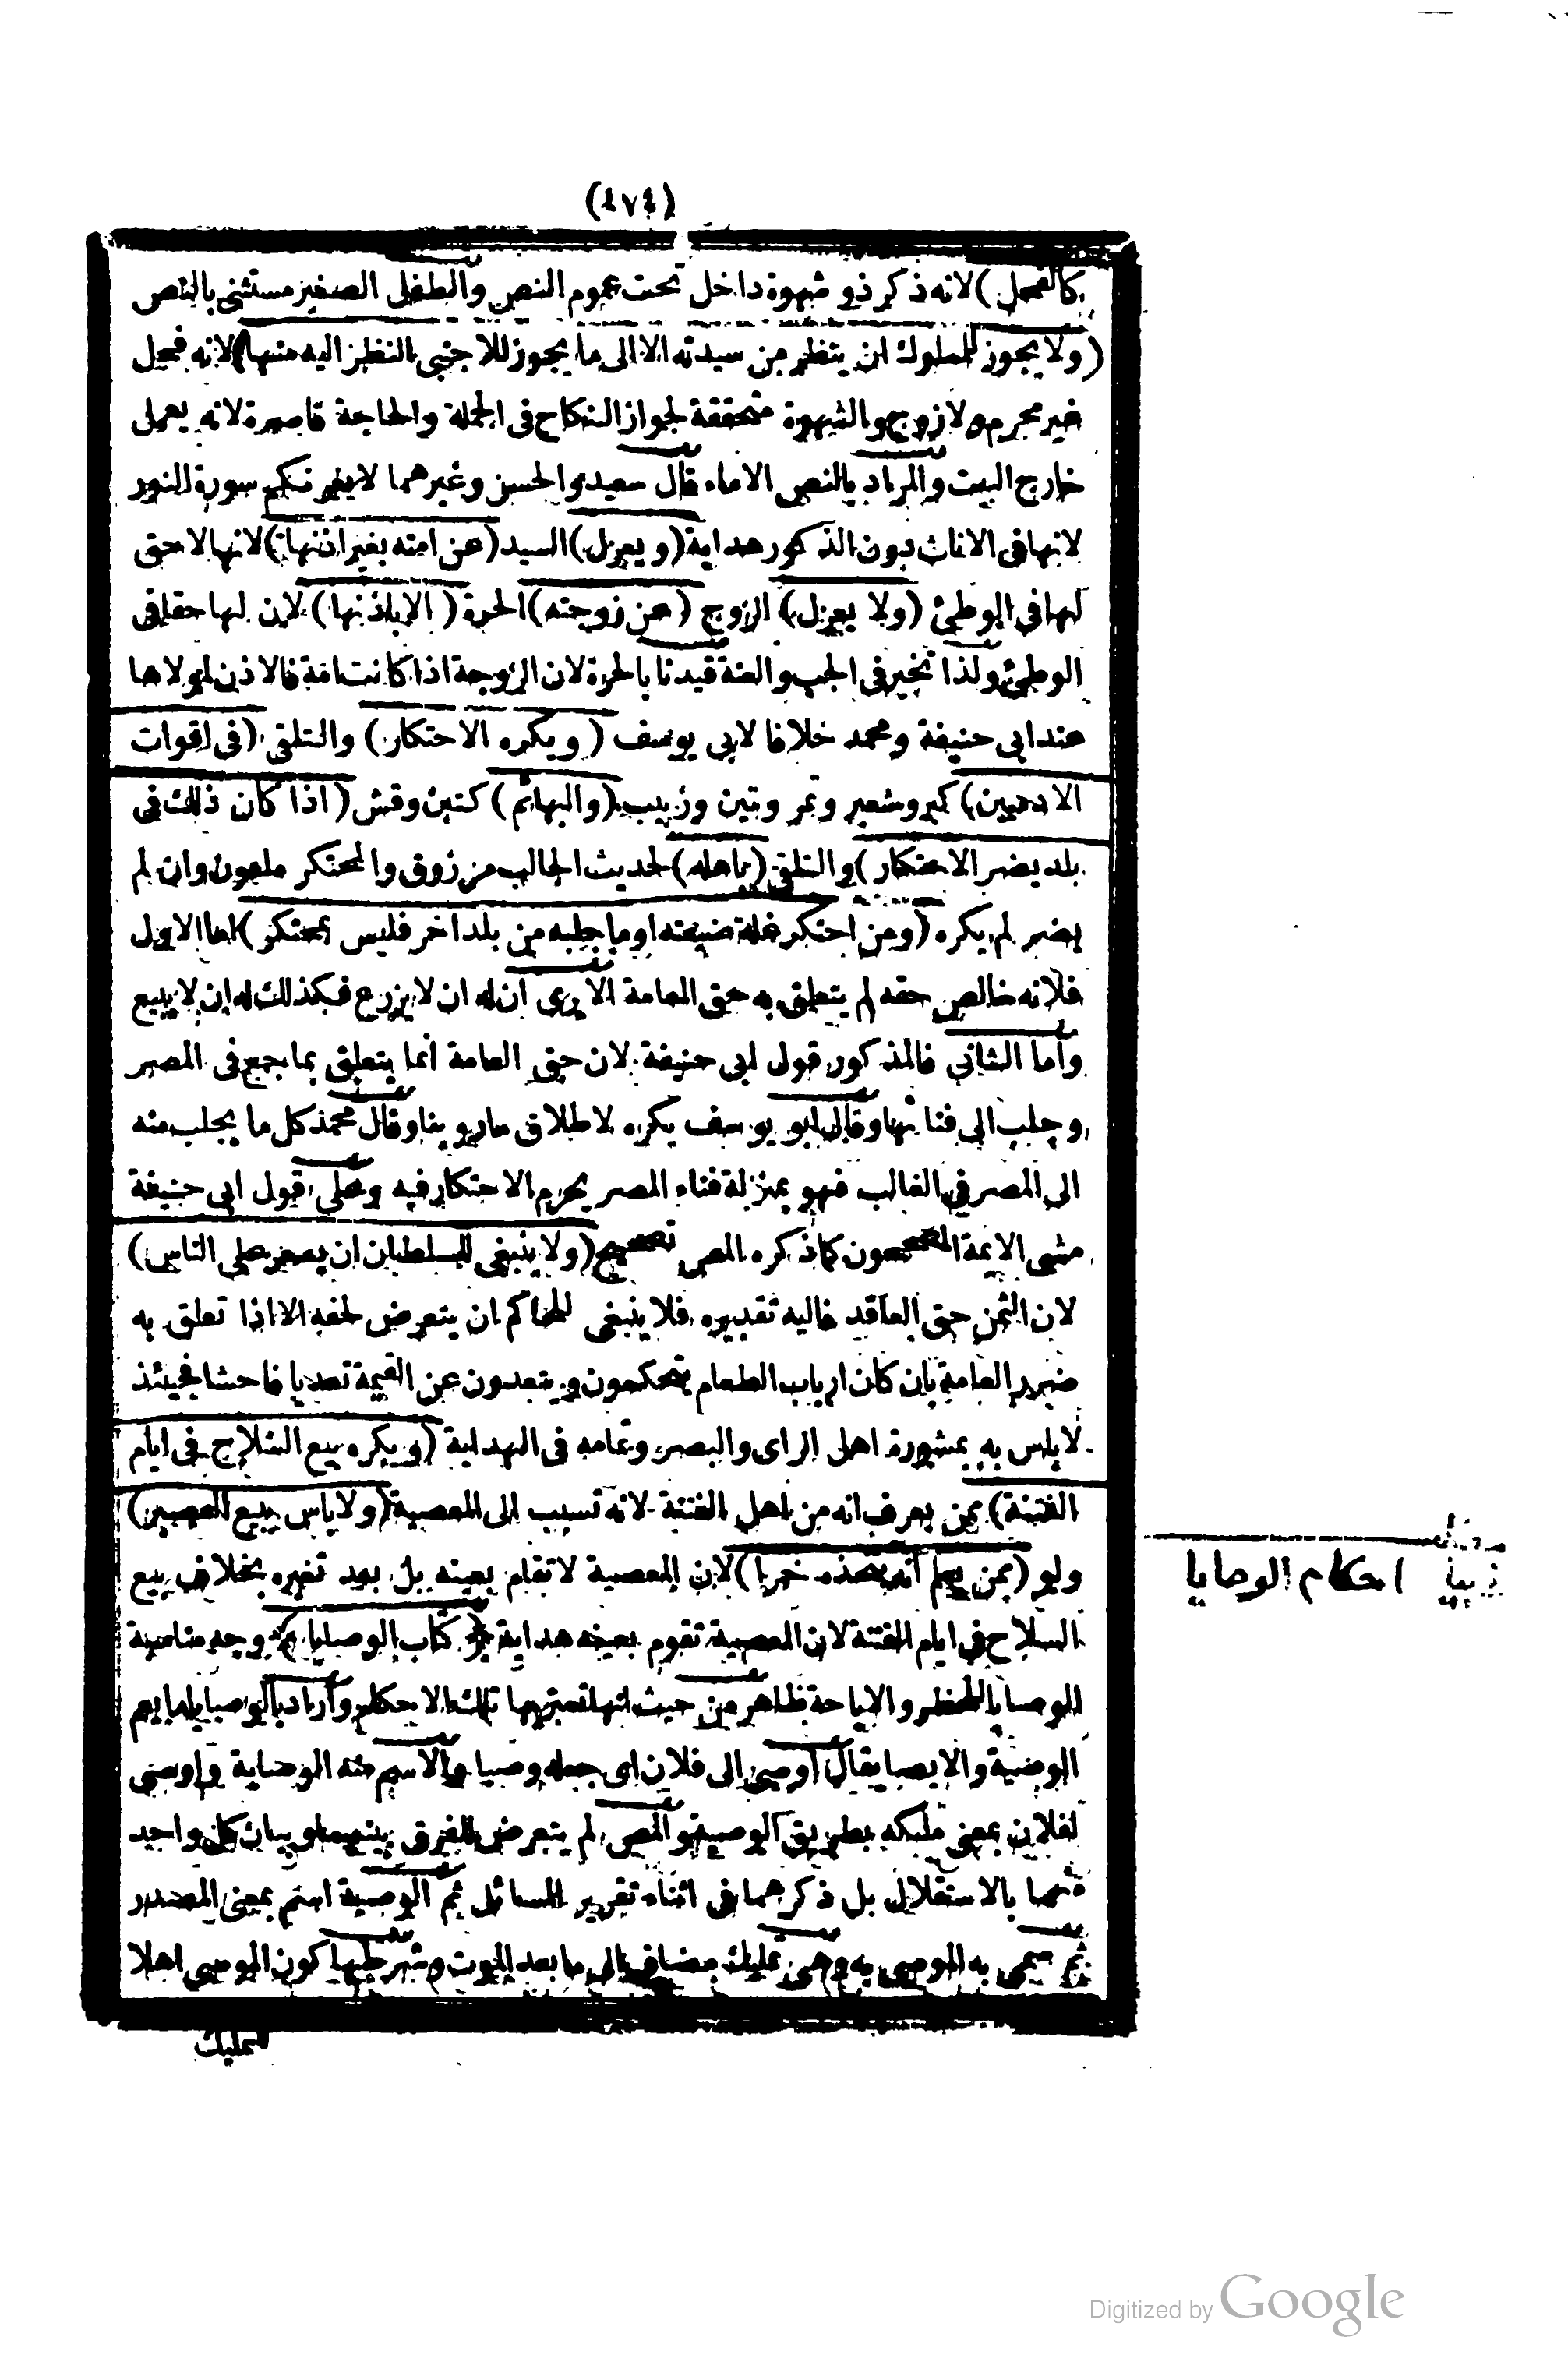 (٤٧٤)
كالفحل) لانه ذكر ذو شهوة داخل تحت عموم النص والطفل الصغير مستثنى بالنص
(ولا يجوز للمملوك ان ينظر من سيدته الا الى ما يجوز للاجنبي النظر اليه منها) لانه فحل
غير محرم ولا زوج والشهوة متحققة لجواز النكاح فى الجملة والحاجة قاصرة لانه يعمل
خارج البيت والمراد بالنص الاماء قال سعيد والحسن وغيرهما لا يغرنكم سورة النور
لانها فى الاناث دون الذكور هداية (ويعزل) السيد (عن امته بغير اذنها) لانها لا حق
لها فى الوطئ (ولا يعزل) الزوج (عن زوجته) الحرة (الا باذنها) لان لها حقا فى
الوطئ ولذا تخير فى الجب والعنة قيدنا بالحرة لان الزوجة اذا كانت امة فالاذن لمولاها
عند ابى حنيفة ومحمد خلافا لابى يوسف (ويكره الاحتكار) والتلقى (فى اقوات
الادميين) كبر وشعير وتمر وتين وزبيب (والبهائم) كتبن وقش (اذا كان ذلك فى
بلد يضر الاحتكار) والتلقى (باهله) لحديث الجالب مرزوق والمحتكر ملعون وان لم
يضر لم يكره (ومن احتكر غلة ضيعته او ما جلبه من بلد اخر فليس بمحتكر) اما الاول
فلانه خالص حقه لم يتعلق به حق العامة الا يرى ان له ان لا يزرع فكذلك له ان لا يبيع
واما الثانى فالمذكور قول ابى حنيفة لان حق العامة انما يتعلق بما جمع فى المصر
وجلب الى فنائها وقال ابو يوسف يكره لاطلاق ما روينا وقال محمد كل ما يجلب منه
الى المصر فى الغالب فهو بمنزلة فناء المصر يحرم الاحتكار فيه وعلى قول ابى حنيفة
مشى الائمة المصححون كما ذكره المص تصحيح (ولا ينبغى للسلطان ان يسعر على الناس)
لان الثمن حق العاقد فاليه تقديره فلا ينبغى للحاكم ان يتعرض لحقه الا اذا تعلق به
ضرر العامة بان كان ارباب الطعام يتحكمون ويتعدون عن القيمة تعديا فاحشا فحينئذ
لا باس به بمشورة اهل الراى والبصر وتمامه فى الهداية (ويكره بيع السلاح فى ايام
الفتنة) ممن يعرف انه من اهل الفتنة لانه تسبب الى المعصية (ولا باس ببيع العصير)
ولو (ممن يعلم انه يتخذه خمرا) لان المعصية لا تقام بعينه بل بعد تغيره بخلاف بيع
السلاح فى ايام الفتنة لان المعصية تقوم بعينه هداية ﴿ كتاب الوصايا ﴾ وجه مناسبة
الوصايا للحظر والاباحة ظاهر من حيث انها تعتريها تلك الاحكام واراد بالوصايا ما يعم
الوصية والايصا يقال اوصى الى فلان اى جعله وصيا والاسم منه الوصاية واوصى
لفلان بمعنى ملكه بطريق الوصية والمص لم يتعرض للفرق بينهما وبيان كل واحد
منهما بالاستقلال بل ذكرهما فى اثناء تقرير المسائل ثم الوصية اسم بمعنى المصدر
ثم سمى به الموصى به وهى تمليك مضاف الى ما بعد الموت وشرطها كون الموصى اهلا
تمليك
احكام الوصايا
Digitized by Google